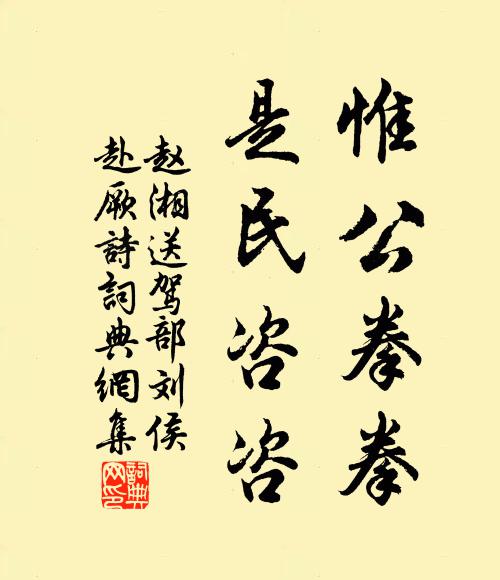 惟公拳拳
是民咨咨
赵湘送驾部刘侯
赴厥詩詞典網集
詞典
网